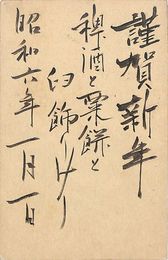 謹賀新年
稗酒と粟餅と
臼飾りけり
昭和六年一月一日